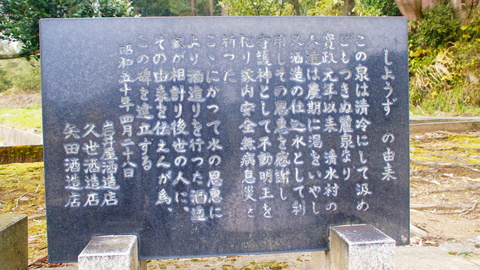 しょうず の由来
この泉は清冷にして汲め
どもつきぬ靈泉なり
寛政元年以来 清水村の
人達は農期に渇をいやし
又酒造の仕込水として利
用しその恩恵を感謝し
守護神として不動明王を
祀り家内安全無病息災を
祈った
ここにかつて水の恩恵に
より酒造りを行った酒造
家が相計り後世の人に
その由来を伝えんが為、
この碑を建立する
昭和五十年四月二十八日
岩井屋酒造店
久世酒造店
矢田酒造店